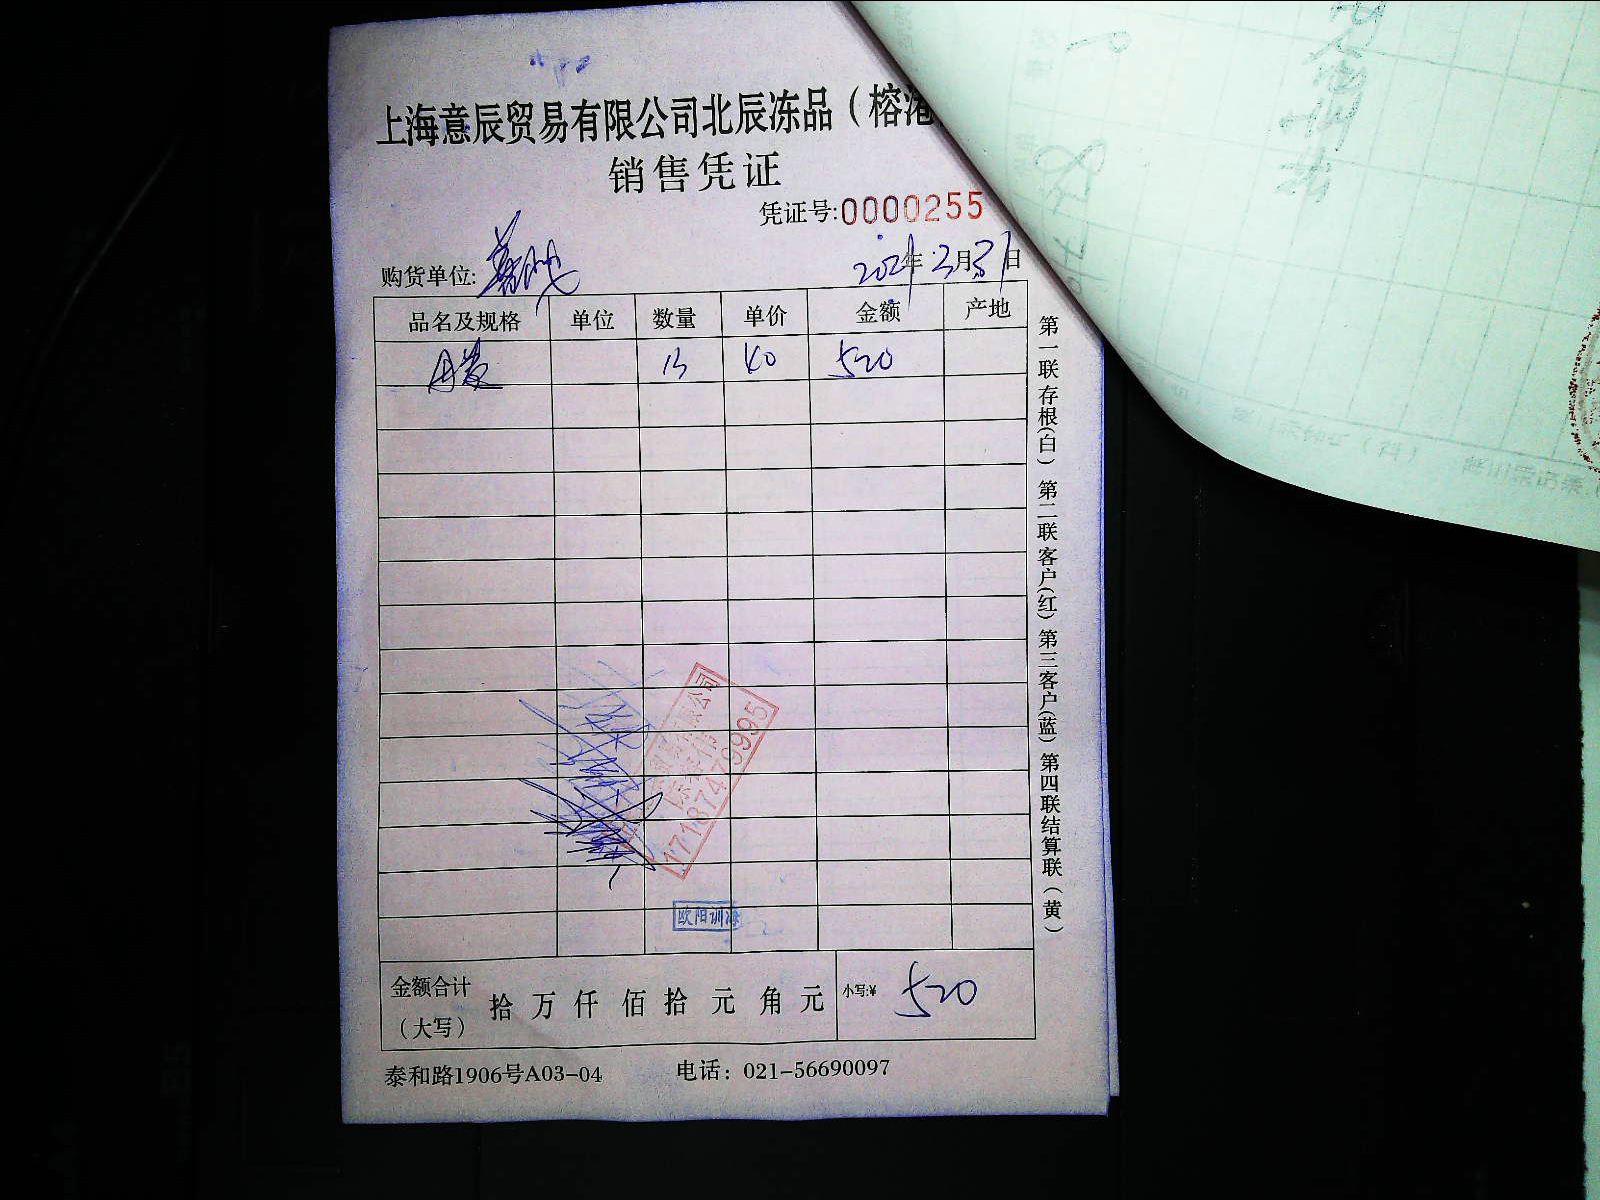 上海意辰贸易有限公司北辰冻品（榕港
销售凭证
凭证号:0000255
购货单位:
2021年3月31日
品名及规格 单位 数量 单价 金额 产地
13 40 520
第一联存根(白) 第二联客户(红) 第三客户(蓝) 第四联结算联(黄)
公司
17187479995
欧阳训海
金额合计（大写） 拾 万 仟 佰 拾 元 角 元 小写:¥ 520
泰和路1906号A03-04 电话：021-56690097